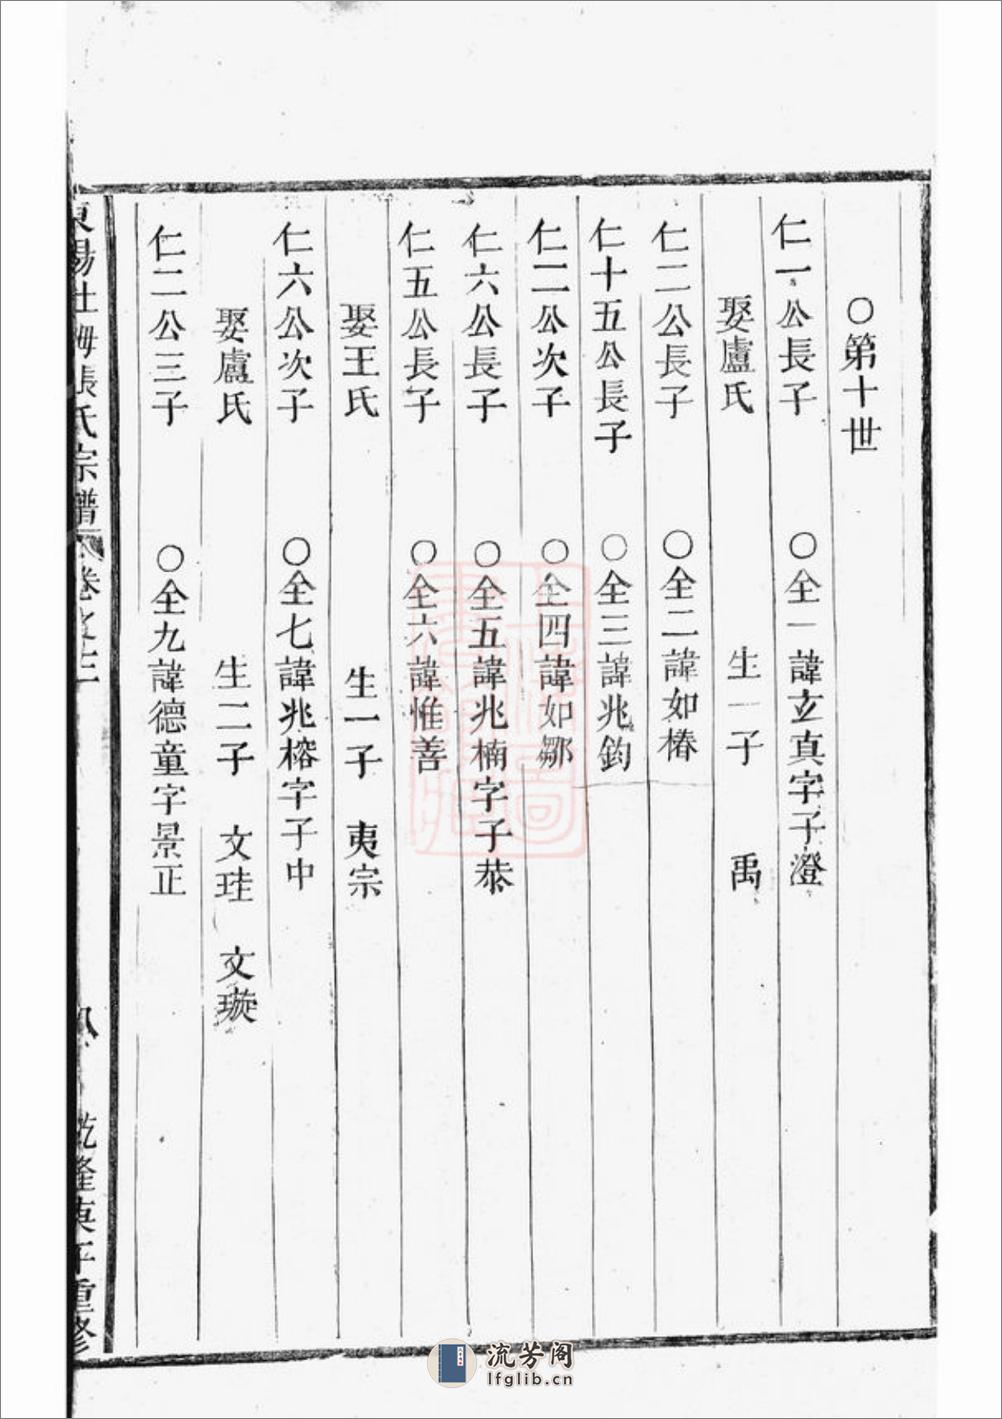 ○第十世
仁一公長子　○全一諱立真字子澄
娶盧氏　生一子　禹
仁二公長子　○全二諱如椿
仁十五公長子　○全三諱兆鈞
仁二公次子　○全四諱如鄒
仁六公長子　○全五諱兆楠字子恭
仁五公長子　○全六諱惟善
娶王氏　生一子　夷宗
仁六公次子　○全七諱兆榕字子中
娶盧氏　生二子　文珪　文璇
仁二公三子　○全九諱德童字景正
東陽 張氏宗譜 卷之 乾隆庚午重修
流芳阁
lfglib.cn